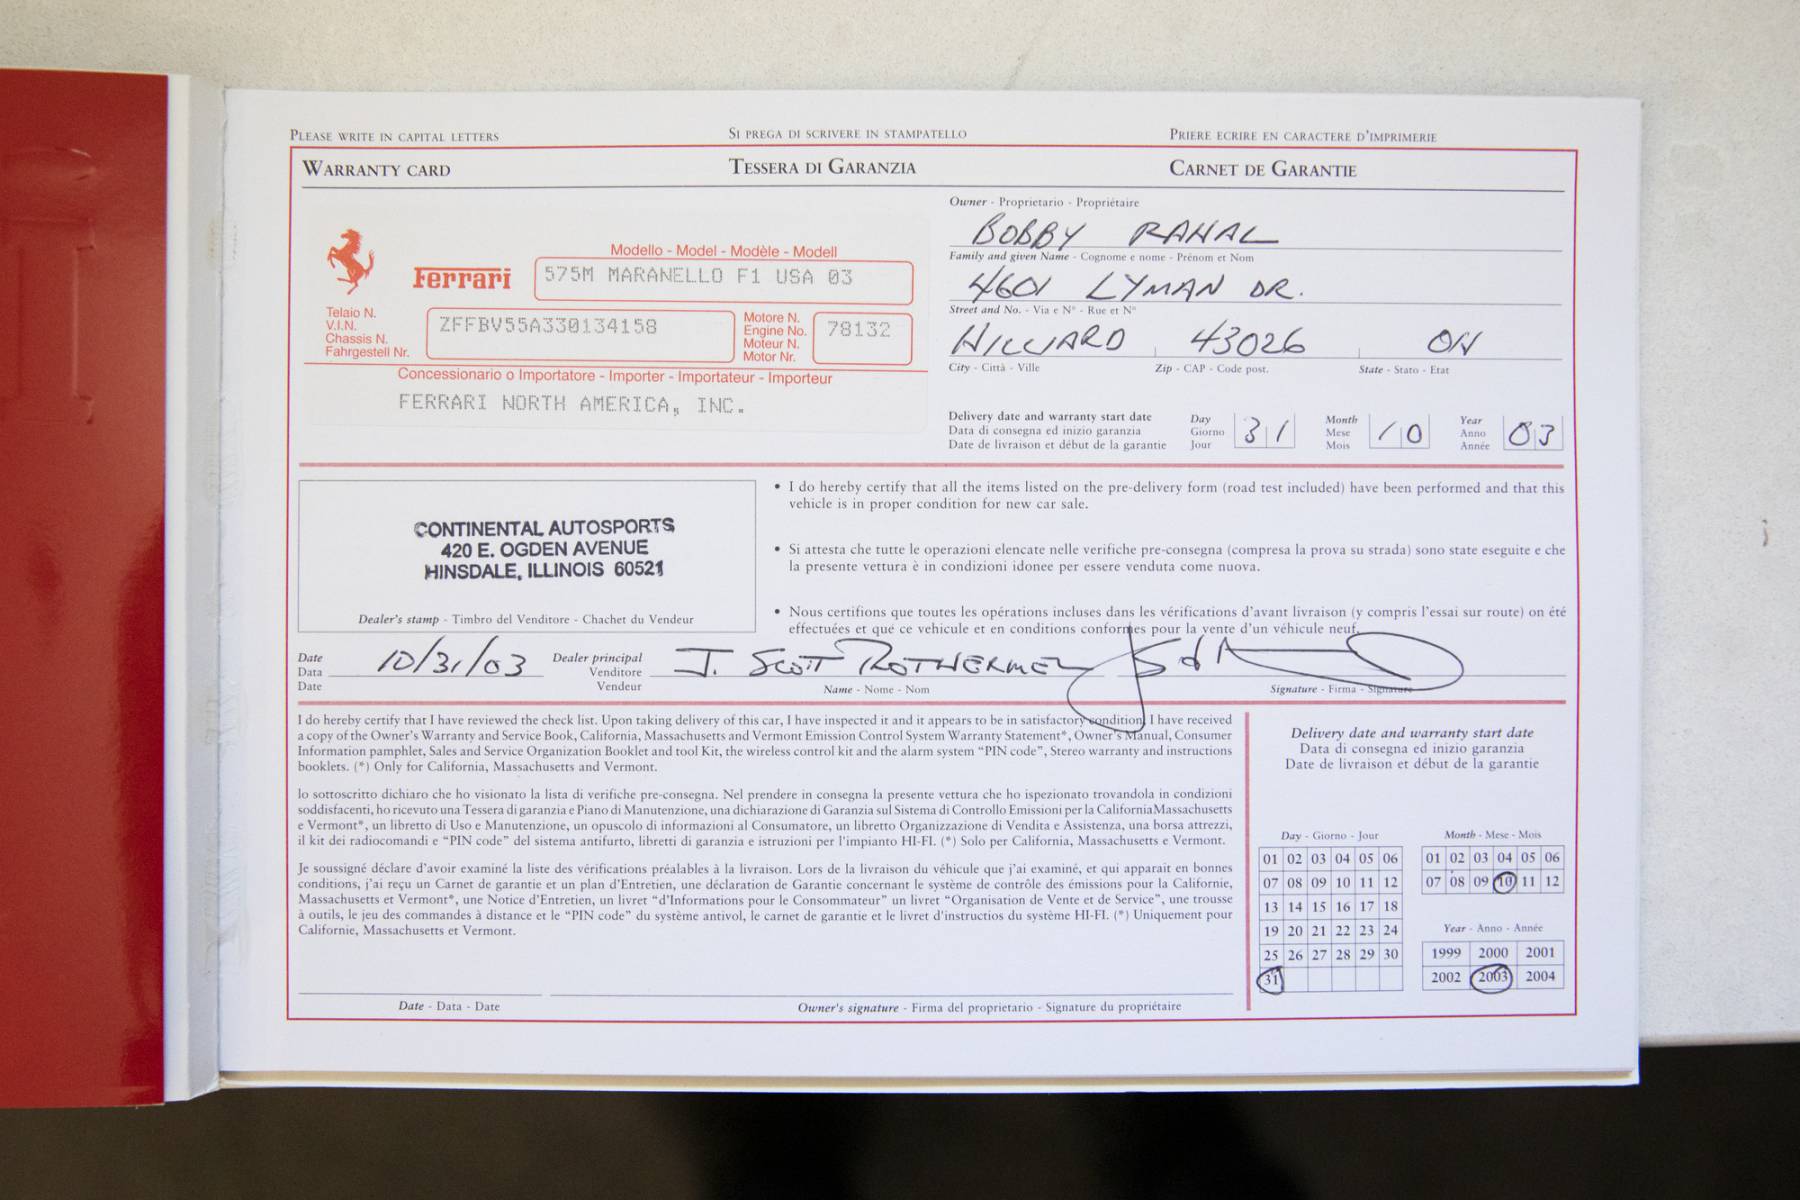 PLEASE WRITE IN CAPITAL LETTERS SI PREGA DI SCRIVERE IN STAMPATELLO PRIERE ECRIRE EN CARACTERE D'IMPRIMERIE
WARRANTY CARD TESSERA DI GARANZIA CARNET DE GARANTIE
Owner - Proprietario - Propriétaire
BOBBY RAHAL
Family and given Name - Cognome e nome - Prénom et Nom
4601 LYMAN DR.
Street and No. - Via e N° - Rue et N°
HILLIARD 43026 OH
City - Città - Ville Zip - CAP - Code post. State - Stato - Etat
Modello - Model - Modèle - Modell
Ferrari 575M MARANELLO F1 USA 03
Telaio N.
V.I.N.
Chassis N.
Fahrgestell Nr.
ZFFBV55A330134158
Motore N.
Engine No.
Moteur N.
Motor Nr.
78132
Concessionario o Importatore - Importer - Importateur - Importeur
FERRARI NORTH AMERICA, INC.
Delivery date and warranty start date
Data di consegna ed inizio garanzia
Date de livraison et début de la garantie
Day
Giorno
Jour
31
Month
Mese
Mois
10
Year
Anno
Année
03
CONTINENTAL AUTOSPORTS
420 E. OGDEN AVENUE
HINSDALE, ILLINOIS 60521
Dealer's stamp - Timbro del Venditore - Chachet du Vendeur
• I do hereby certify that all the items listed on the pre-delivery form (road test included) have been performed and that this
vehicle is in proper condition for new car sale.
• Si attesta che tutte le operazioni elencate nelle verifiche pre-consegna (compresa la prova su strada) sono state eseguite e che
la presente vettura è in condizioni idonee per essere venduta come nuova.
• Nous certifions que toutes les opérations incluses dans les vérifications d'avant livraison (y compris l'essai sur route) on été
effectuées et que ce vehicule et en conditions conformes pour la vente d'un véhicule neuf.
Date
Data
Date
10/31/03
Dealer principal
Venditore
Vendeur
J. SCOTT ROTHERMEL
Name - Nome - Nom Signature - Firma - Signature
I do hereby certify that I have reviewed the check list. Upon taking delivery of this car, I have inspected it and it appears to be in satisfactory condition. I have received
a copy of the Owner's Warranty and Service Book, California, Massachusetts and Vermont Emission Control System Warranty Statement*, Owner's Manual, Consumer
Information pamphlet, Sales and Service Organization Booklet and tool Kit, the wireless control kit and the alarm system "PIN code", Stereo warranty and instructions
booklets. (*) Only for California, Massachusetts and Vermont.
Io sottoscritto dichiaro che ho visionato la lista di verifiche pre-consegna. Nel prendere in consegna la presente vettura che ho ispezionato trovandola in condizioni
soddisfacenti, ho ricevuto una Tessera di garanzia e Piano di Manutenzione, una dichiarazione di Garanzia sul Sistema di Controllo Emissioni per la CaliforniaMassachusetts
e Vermont*, un libretto di Uso e Manutenzione, un opuscolo di informazioni al Consumatore, un libretto Organizzazione di Vendita e Assistenza, una borsa attrezzi,
il kit dei radiocomandi e "PIN code" del sistema antifurto, libretti di garanzia e istruzioni per l'impianto HI-FI. (*) Solo per California, Massachusetts e Vermont.
Je soussigné déclare d'avoir examiné la liste des vérifications préalables à la livraison. Lors de la livraison du véhicule que j'ai examiné, et qui apparait en bonnes
conditions, j'ai reçu un Carnet de garantie et un plan d'Entretien, une déclaration de Garantie concernant le système de contrôle des émissions pour la Californie,
Massachusetts et Vermont*, une Notice d'Entretien, un livret "d'Informations pour le Consommateur" un livret "Organisation de Vente et de Service", une trousse
à outils, le jeu des commandes à distance et le "PIN code" du système antivol, le carnet de garantie et le livret d'instructios du système HI-FI. (*) Uniquement pour
Californie, Massachusetts et Vermont.
Date - Data - Date Owner's signature - Firma del proprietario - Signature du propriétaire
Delivery date and warranty start date
Data di consegna ed inizio garanzia
Date de livraison et début de la garantie
Day - Giorno - Jour
01 02 03 04 05 06
07 08 09 10 11 12
13 14 15 16 17 18
19 20 21 22 23 24
25 26 27 28 29 30
31
Month - Mese - Mois
01 02 03 04 05 06
07 08 09 10 11 12
Year - Anno - Année
1999 2000 2001
2002 2003 2004